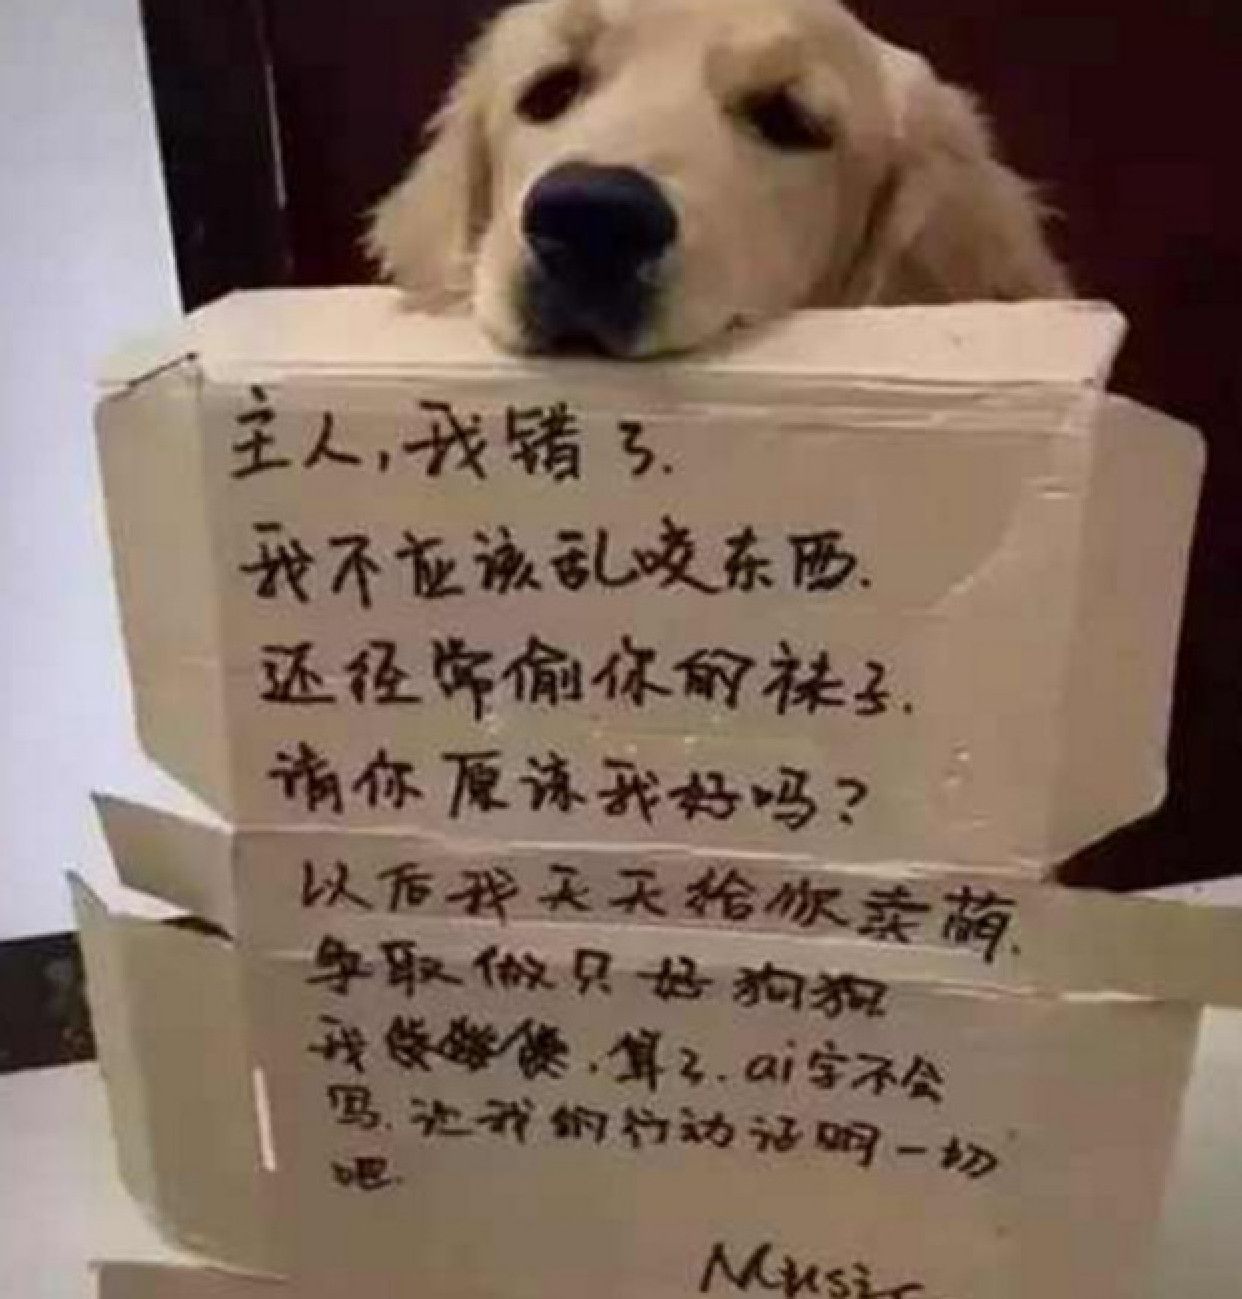 主人,我错了.
我不应该乱咬东西.
还经常偷你的袜子.
请你原谅我好吗?
以后我天天给你卖萌.
争取做只好狗狗
我 . 算了. ai字不会
写. 让我的行动证明一切
吧.
Music